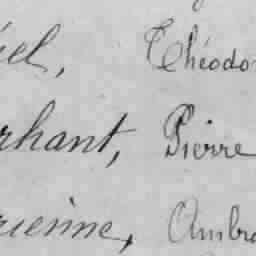 iel, Théodo
rhant, Pierre
rienne, Ambro